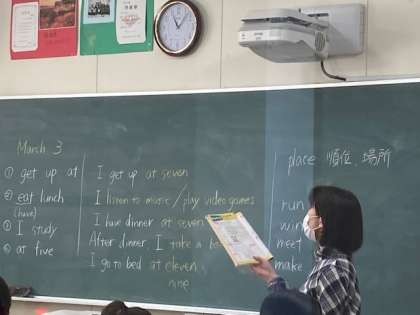 March 3
① get up at
② eat lunch
(have)
③ I study
④ at five
I get up at seven
I listen to music / play video games
I have dinner at seven
After dinner I take a
I go to bed at eleven
nine
place 順位、場所
run
win
meet
make